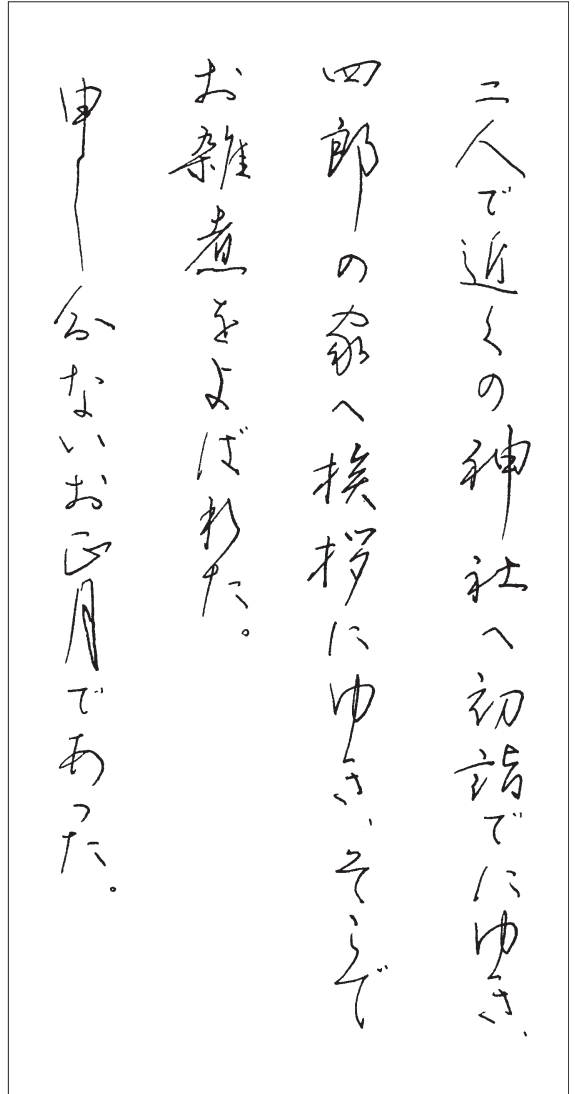 二人で近くの神社へ初詣でにゆき、
四郎の家へ挨拶にゆき、そこで
お雑煮をよばれた。
申し分ないお正月であった。